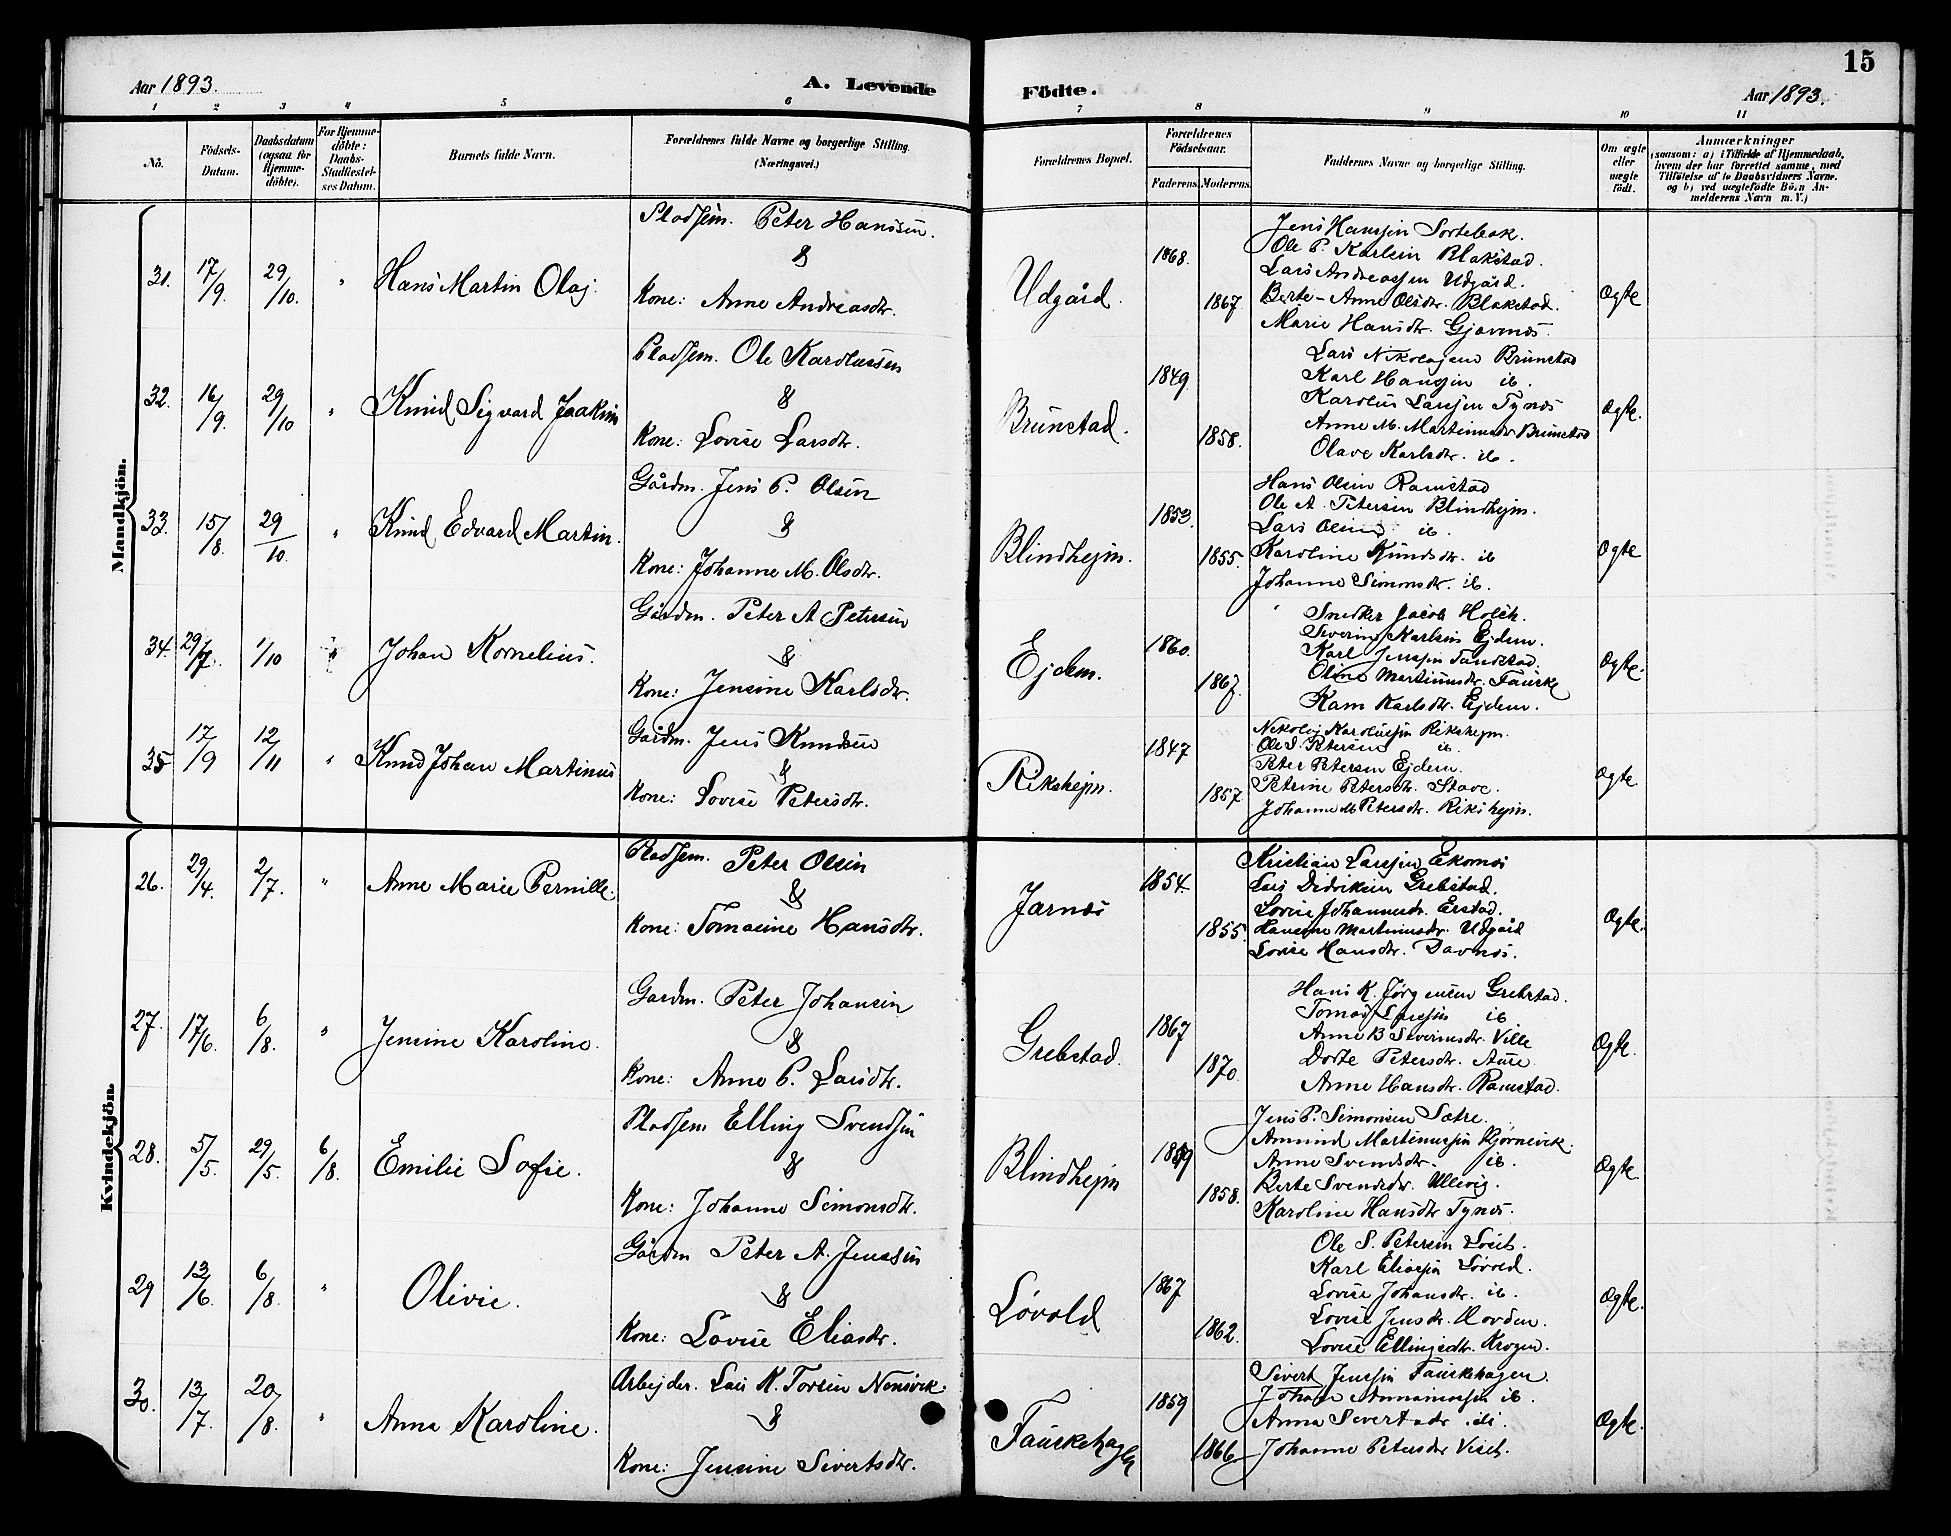 15
Aar 1893.
A. Levende
Födte.
Aar 1893.
1 2 3 4 5 6 7 8 9 10 11
No.
Födsels-Datum.
Daabsdatum (ogsaa for Hjemmedöbte).
For Hjemmedöbte: Daabs-Stadfæstelses Datum.
Barnets fulde Navn.
Forældrenes fulde Navne og borgerlige Stilling. (Næringsvei.)
Forældrenes Bopæl.
Forældrenes Födselsaar.
Faderens. Moderens.
Faddernes Navne og borgerlige Stilling.
Om ægte eller uægte födt.
Anmærkninger
(saasom: a) i Tilfælde af Hjemmedaab, hvem der har forrettet samme, med Tilföielse af to Daabsvidners Navne. og b) ved uægtefödte Börn Anmelderens Navn m. V.)
Mandkjön.
31. 17/9. 29/10. " Hans Martin Olaj.
Pladsem. Peter Hanssen.
&
Kone: Anne Andreasdtr.
Udgård. 1868. 1867.
Jens Hanssen Sortebak.
Ole P. Karlsen Blakstad.
Lars Andreassen Udgård.
Berte-Anne Olsdtr. Blakstad.
Marie Hansdtr. Gjævenæs.
Ægte
32. 16/9. 29/10 " Knud Sigvard Joakim
Pladsem. Ole Karolussen
&
Kone: Lovise Larsdtr.
Brunstad. 1849. 1858.
Lars Nikolajsen Brunstad
Karl Hanssen ib.
Karolus Larssen Tynæs
Anne M. Martinusdtr Brunstad
Olave Karlsdtr. ib.
Ægte.
33. 15/8. 29/10. " Knud Edvard Martin.
Gårdm. Jens P. Olsen
&
Kone: Johanne M. Olsdtr.
Blindhejm. 1853. 1855.
Hans Olsen Ramstad
Ole A. Petersen Blindhejm.
Lars Olsen ib.
Karoline Knudsdtr. ib
Johanne Simonsdtr. ib.
Ægte
34. 29/7. 1/10 " Johan Kornelius.
Gårdm. Peter A Petersen
&
Kone: Jensine Karlsdtr.
Ejdem. 1860. 1867.
Snedker Jacob Holch.
Severin Karlsen Ejdem.
Karl Jenssen Tandstad.
Oline Martinusdtr. Fauske
Karn Karlsdtr. Ejdem.
Ægte.
35 17/9 12/11 " Knud Johan Martinus
Gårdm. Jens Knudsen
&
Kone: Lovise Petersdtr.
Rikshejm. 1847 1857
Nikolaj Karolussen Rikshejm.
Ole S. Petersen ib
Peter Petersen Ejdem.
Petrine Petersdtr. Stave.
Johanne M Petersdtr. Rikshejm.
Ægte
Kvindekjön.
26. 29/4. 2/7. " Anne Marie Pernille.
Pladsem. Peter Olsen
&
Kone: Tomasine Hansdtr.
Jarnæs 1854. 1855.
Kristian Larssen Ekornæs
Lars Didriksen Grebstad.
Lovise Johannesdtr. Erstad.
Hansine Martinusdtr. Udgård
Lovise Hansdtr. Davnæs.
Ægte.
27. 17/6. 6/8. " Jensine Karoline.
Gardm. Peter Johansen
&
Kone: Anne P. Larsdtr.
Grebstad. 1867 1870.
Hans K. Jørgensen Grebstad.
Tomas Larssen ib
Anne B Severinsdtr. Ville
Dorte Petersdtr. Aure
Anne Hansdtr. Ramstad.
Ægte.
28. 5/5. 29/5. 6/8. Emilie Sofie.
Pladsem Elling Svendsen
&
Kone: Johanne Simonsdtr.
Blindhejm 1858.
Jens P. Simonsen Sætre.
Amund Martinussen Bjørnevik.
Anne Svendsdtr. ib.
Berte Svendsdtr. Ullevig.
Karoline Hansdtr Tynæs.
Ægte.
29 13/6. 6/8. " Olivie.
Gårdm Peter A. Jenssen
&
Kone: Lovise Eliasdtr.
Løvold 1867 1862.
Ole S. Petersen
Karl Eliassen Løvold.
Lovise Johansdtr. ib.
Lovise Jensdtr. Hovden.
Lovise Ellingsdtr. Krogen.
Ægte.
30. 13/7. 20/8. " Anna Karoline.
Arbejder. Lars K. Torsen Nensvik.
&
Kone: Jensine Sivertsdtr.
Fauskehagen 1859 1866
Sivert Jenssen Fauskehagen.
Johan ib.
Anna Sivertsdtr ib.
Johanne Petersdtr
Ægte.